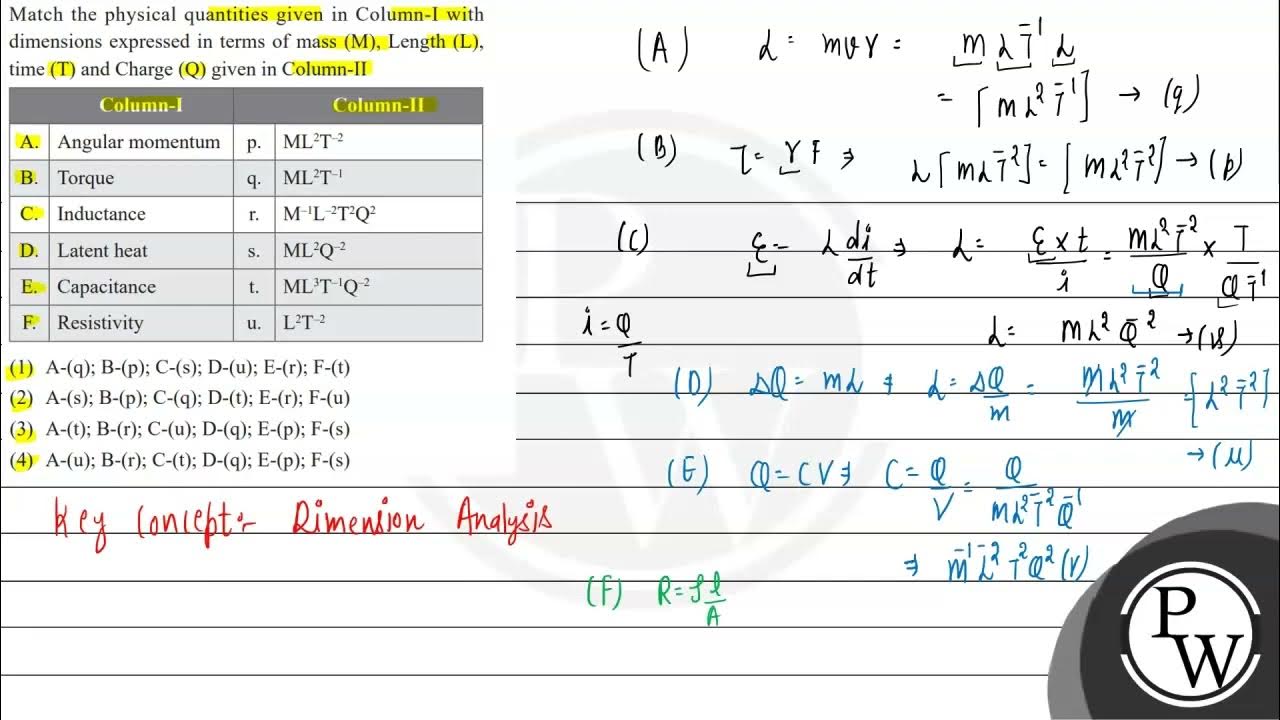 Match the physical quantities given in Column-I with
dimensions expressed in terms of mass (M), Length (L),
time (T) and Charge (Q) given in Column-II
Column-I Column-II
A. Angular momentum p. ML²T⁻²
B. Torque q. ML²T⁻¹
C. Inductance r. M⁻¹L⁻²T²Q²
D. Latent heat s. ML²Q⁻²
E. Capacitance t. ML³T⁻¹Q⁻²
F. Resistivity u. L²T⁻²
(1) A-(q); B-(p); C-(s); D-(u); E-(r); F-(t)
(2) A-(s); B-(p); C-(q); D-(t); E-(r); F-(u)
(3) A-(t); B-(r); C-(u); D-(q); E-(p); F-(s)
(4) A-(u); B-(r); C-(t); D-(q); E-(p); F-(s)
Key Concept:- Dimension Analysis
(A) L = mvr = M L T⁻¹ L
= [M L² T⁻¹] → (q)
(B) τ = r F ⇒ L [M L T⁻²] = [M L² T⁻²] → (p)
(C) ε = L di/dt ⇒ L = ε × t / i = M L² T⁻² / Q × T / Q T⁻¹
i = Q/T
L = M L² Q⁻² → (s)
(D) ΔQ = mL ⇒ L = ΔQ/m = M L² T⁻² / M = [L² T⁻²]
→ (u)
(E) Q = CV ⇒ C = Q/V = Q / M L² T⁻² Q⁻¹
⇒ M⁻¹ L⁻² T² Q² (r)
(F) R = ρ l/A
P
W